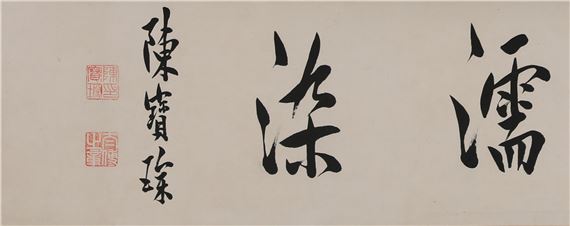 濡染
陳寶琛